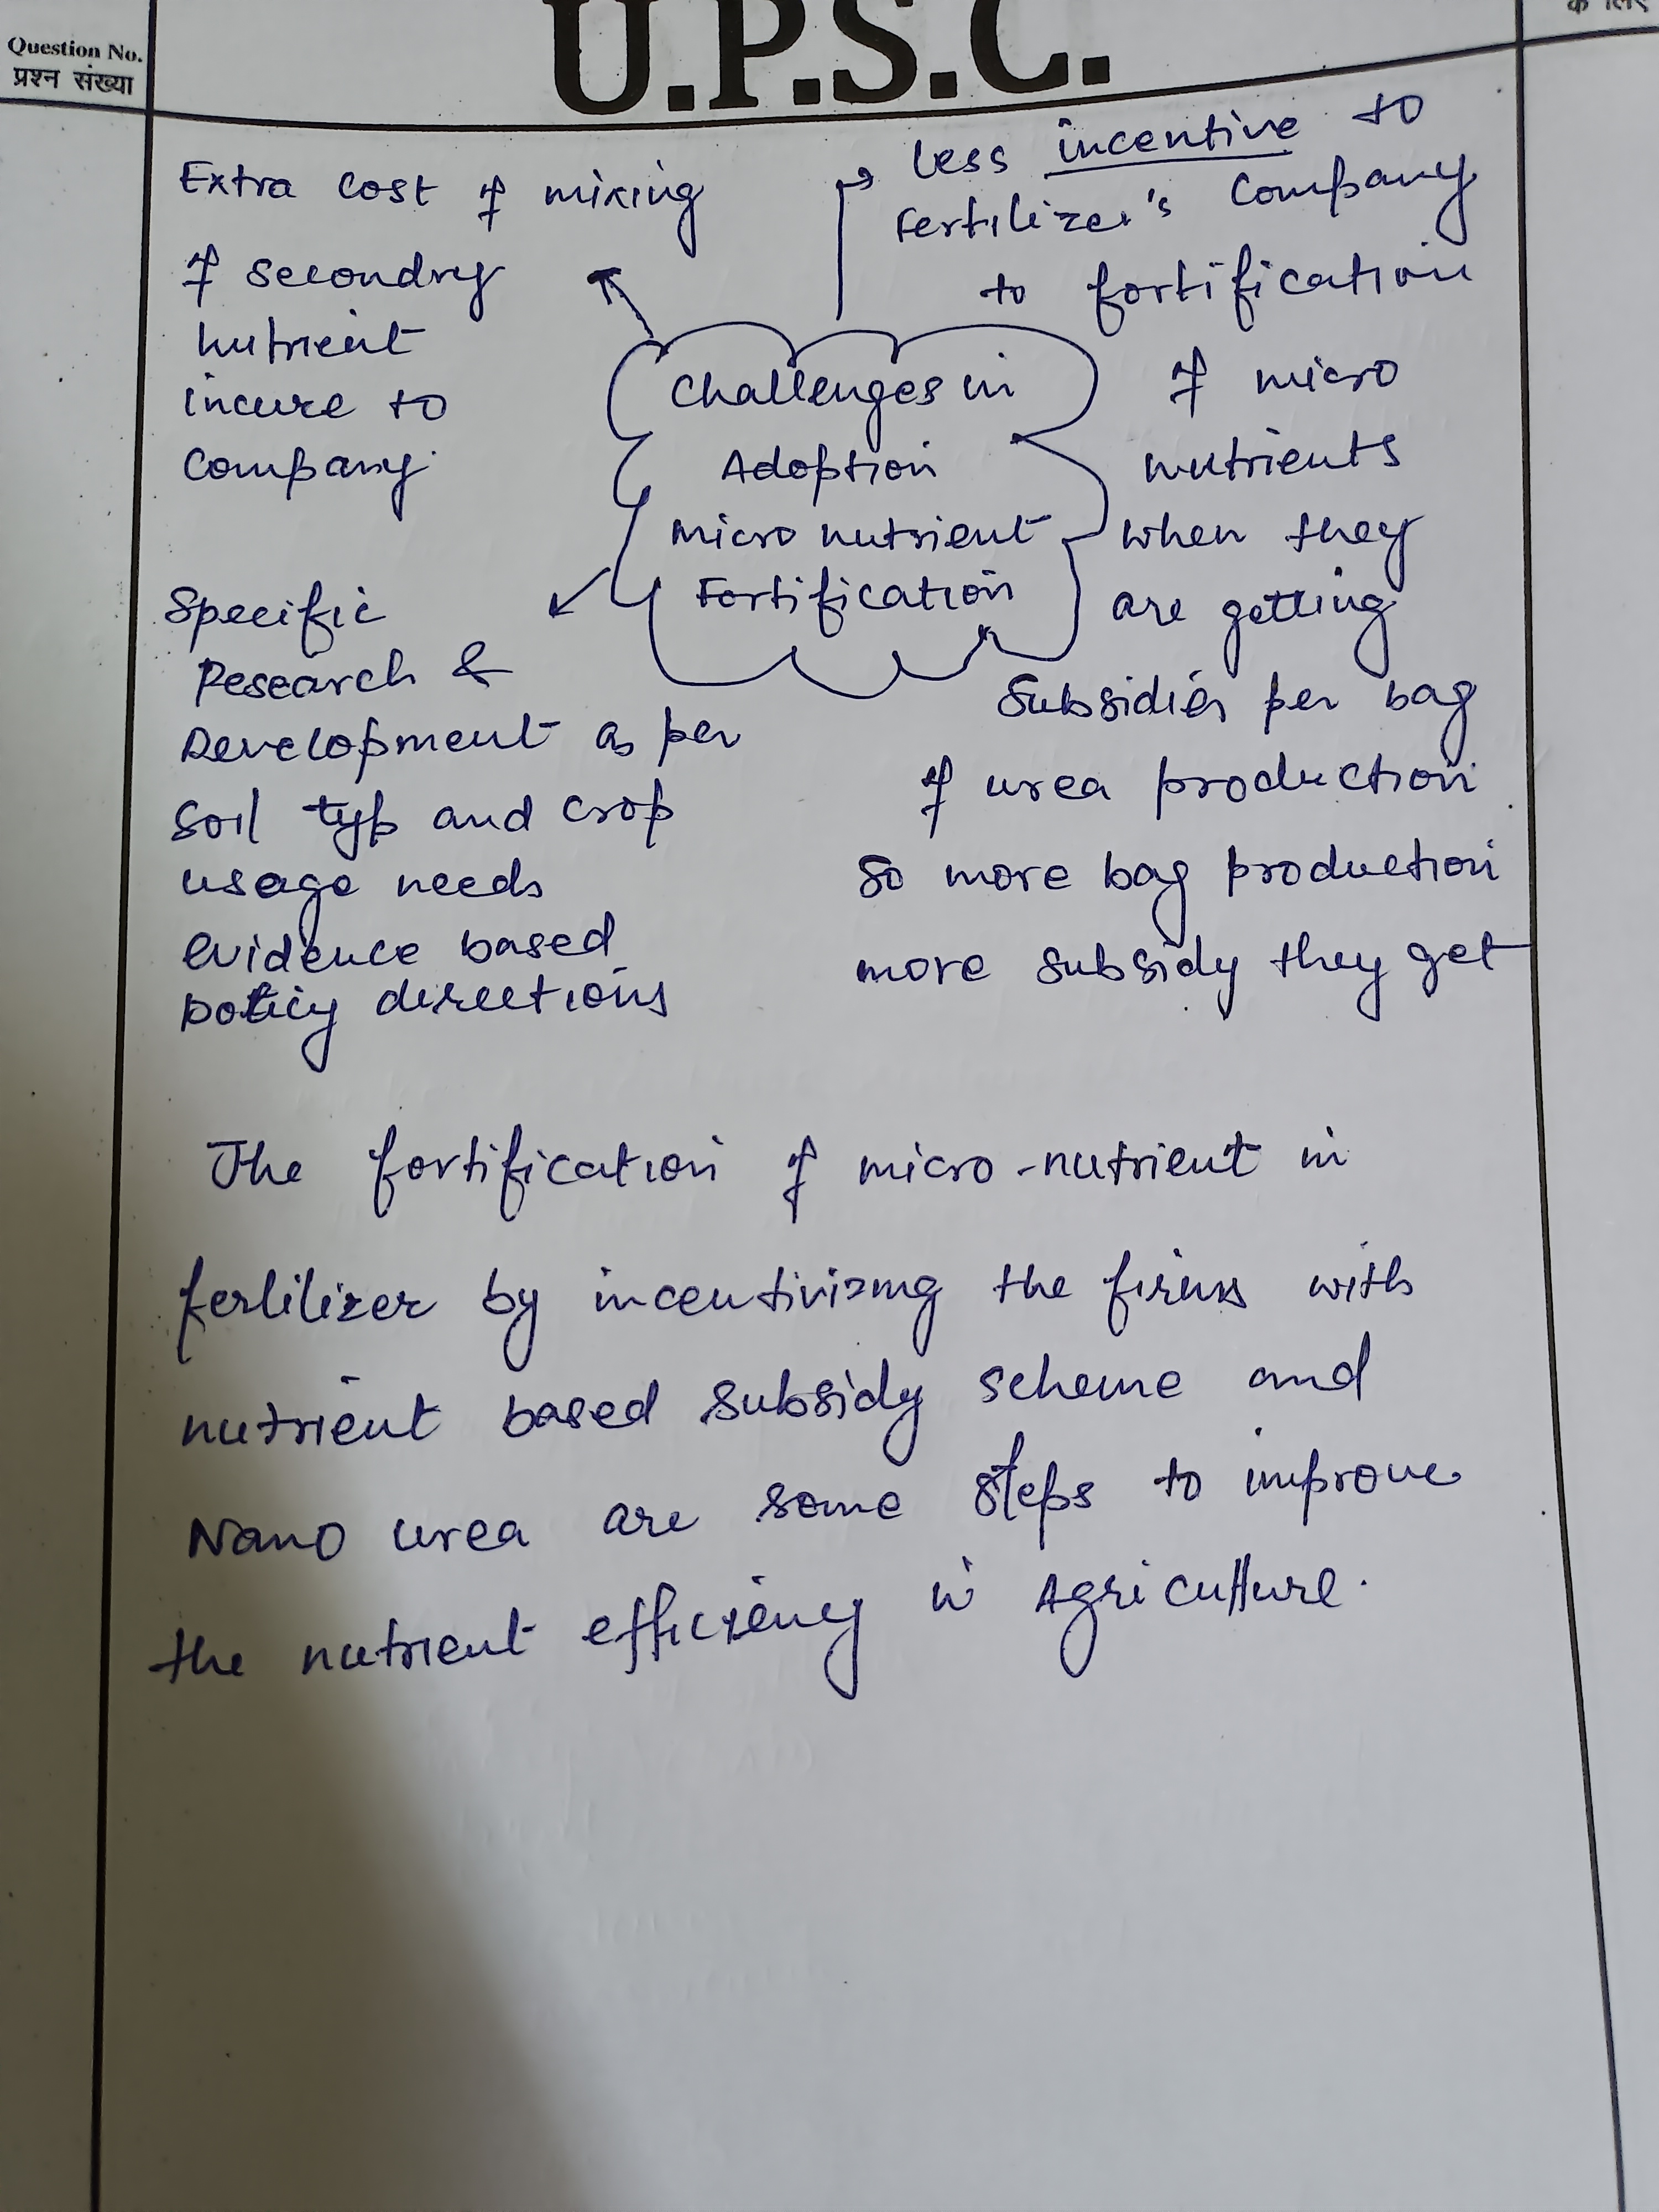 U.P.S.C.
Question No.
प्रश्न संख्या
के लिए
Extra cost of mixing
of secondry
nutrient
incure to
company.
→ less incentive to
Fertilizer's Company
to fortification
of micro
nutrients
when they
are getting
Subsidies per bag
of urea production
So more bag production
more subsidy they get
Challenges in
Adoption
Micro nutrient
Fortification
Specific
Research &
Development as per
Soil typ and crop
usage needs
evidence based
policy directions
The fortification of micro-nutrient in
fertilizer by incentivizing the firms with
nutrient based subsidy scheme and
Nano urea are some steps to improve
the nutrient efficieny in Agriculture.